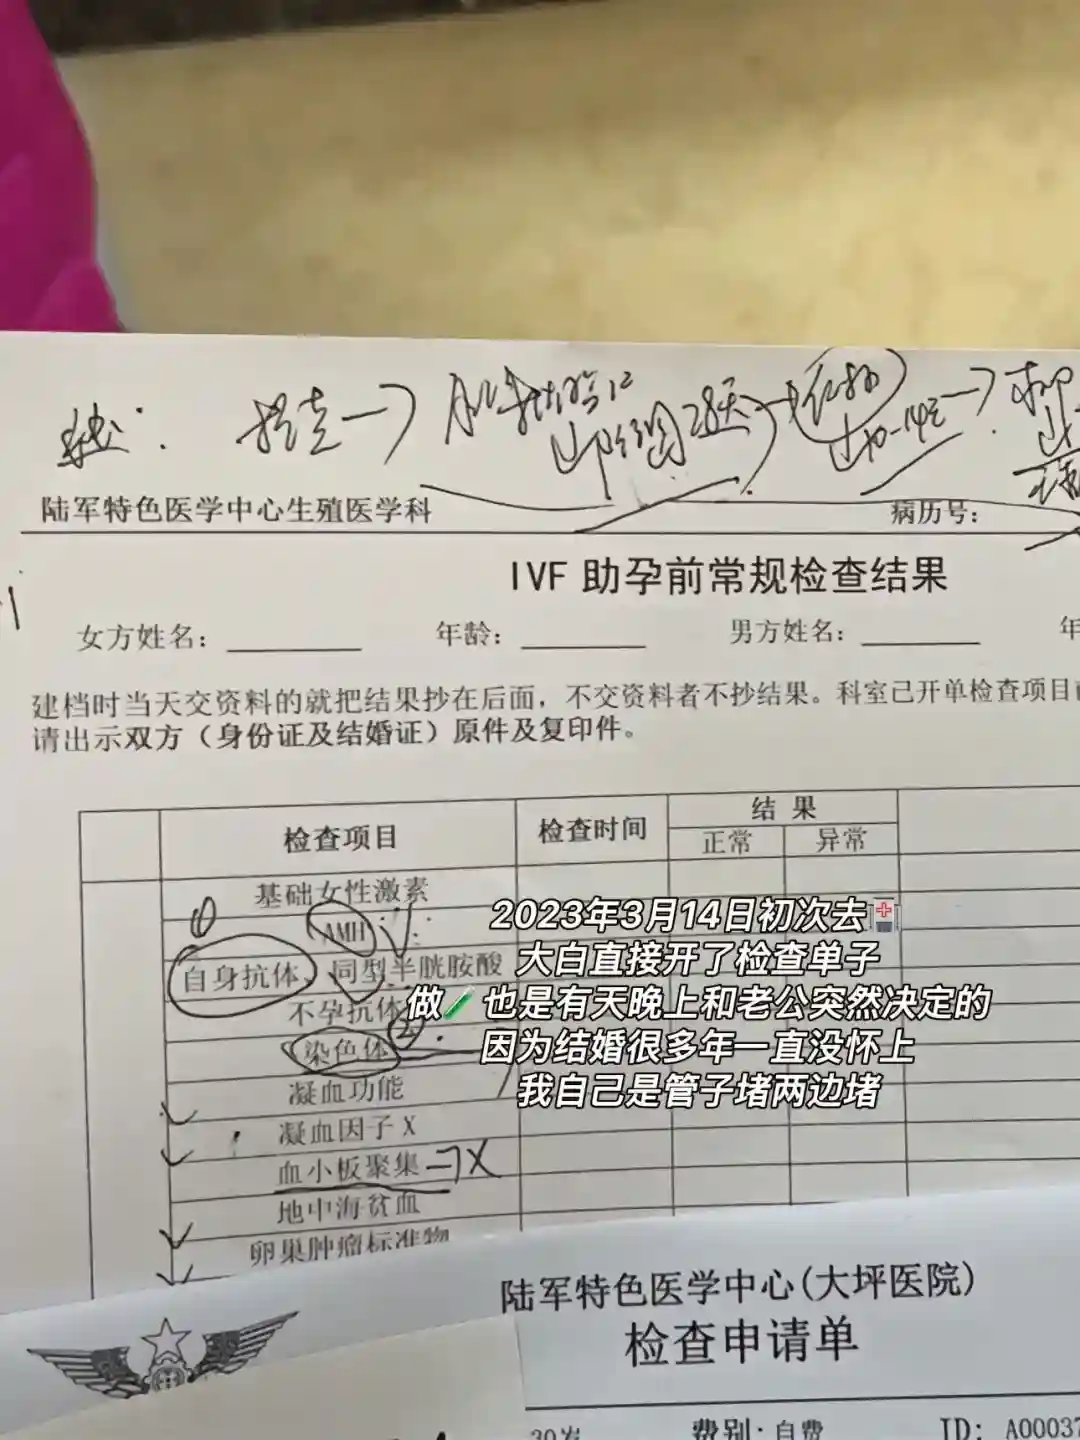 28天
10-14天
陆军特色医学中心生殖医学科
病历号：
IVF 助孕前常规检查结果
女方姓名：
年龄：
男方姓名：
年
建档时当天交资料的就把结果抄在后面，不交资料者不抄结果。科室已开单检查项目
请出示双方（身份证及结婚证）原件及复印件。
检查项目
检查时间
结 果
正常
异常
基础女性激素
①
AMH
自身抗体、同型半胱胺酸
不孕抗体
②
染色体
凝血功能
凝血因子 X
血小板聚集 X
地中海贫血
卵巢肿瘤标准物
2023年3月14日初次去
大白直接开了检查单子
做 也是有天晚上和老公突然决定的
因为结婚很多年一直没怀上
我自己是管子堵两边堵
陆军特色医学中心(大坪医院)
检查申请单
30岁
费别：自费
ID: A00037